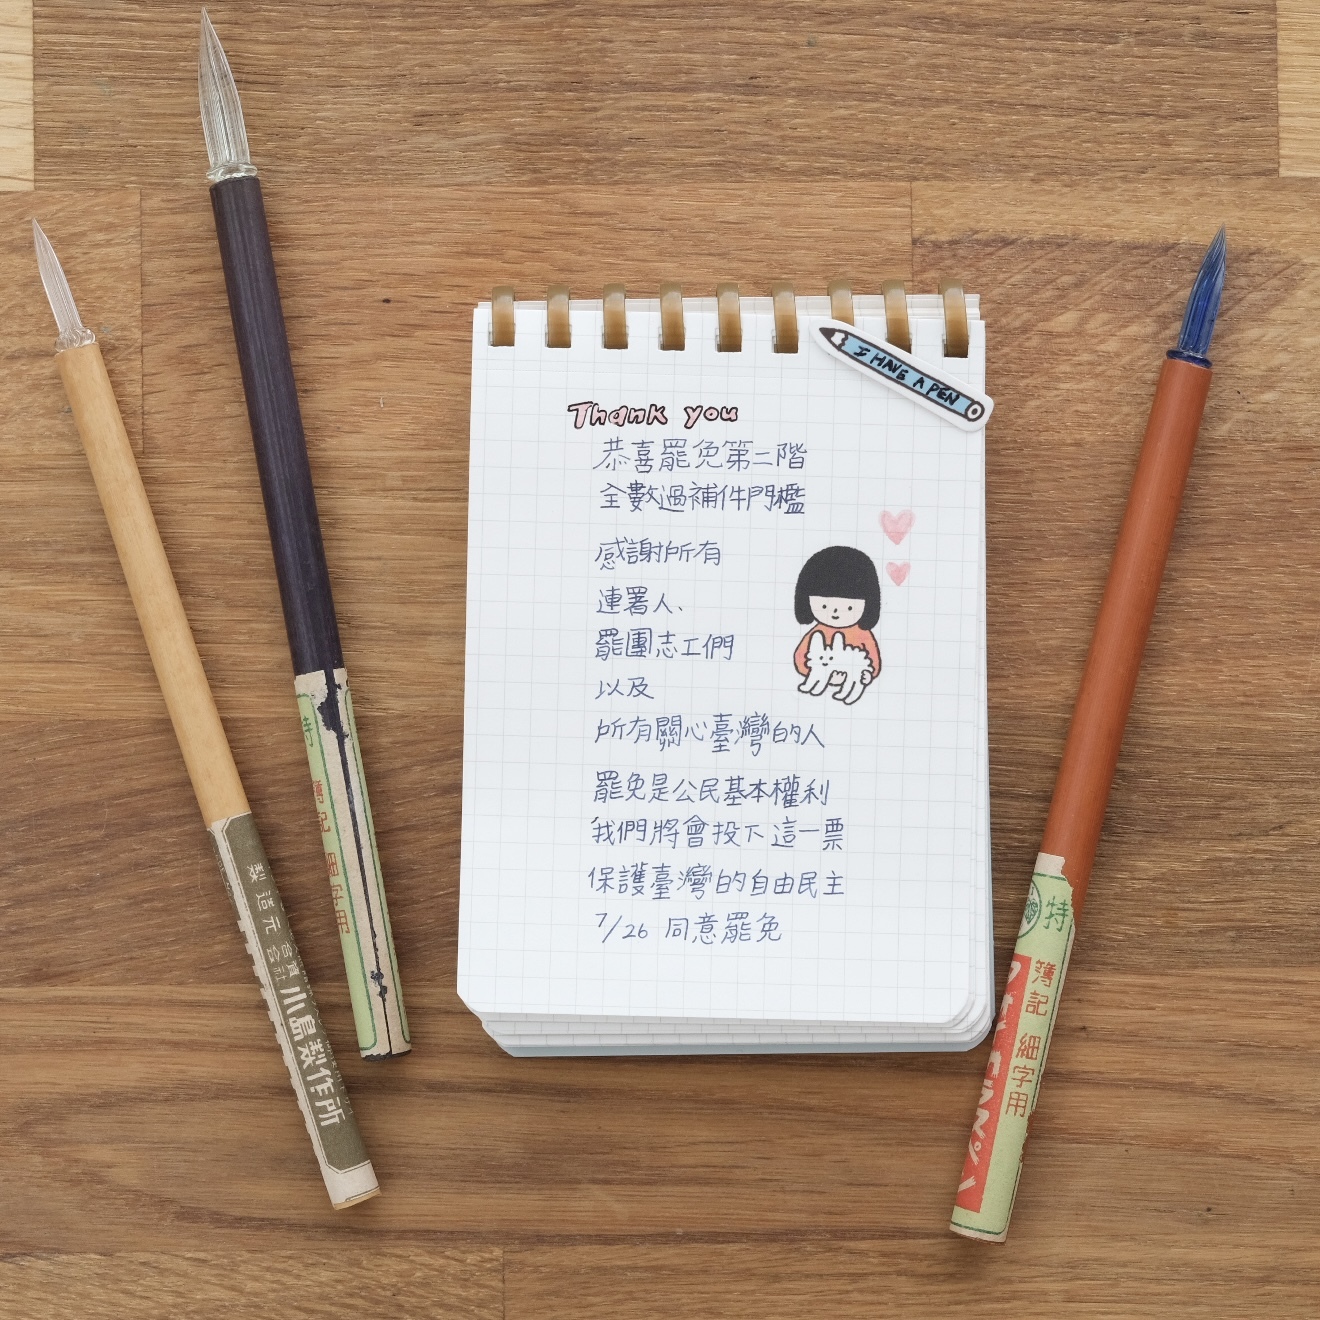 I HAVE A PEN
Thank you
恭喜罷免第二階
全數過補件門檻
感謝所有
連署人、
罷團志工們
以及
所有關心臺灣的人
罷免是公民基本權利
我們將會投下這一票
保護臺灣的自由民主
7/26 同意罷免
製造元 合資会社
小島製作所
特
簿記 細字用
特
簿記 細字用
ガラスペン